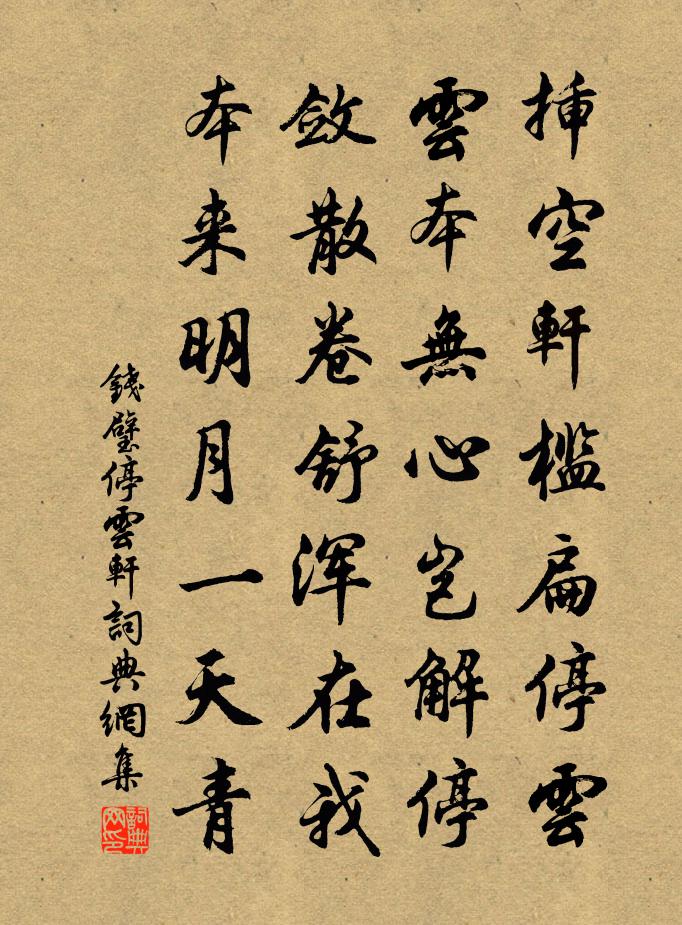 揷空軒檻扁停雲
雲本無心豈解停
斂散卷舒浑在我
本来明月一天青
錢璧停雲軒詞典網集
詞典网印